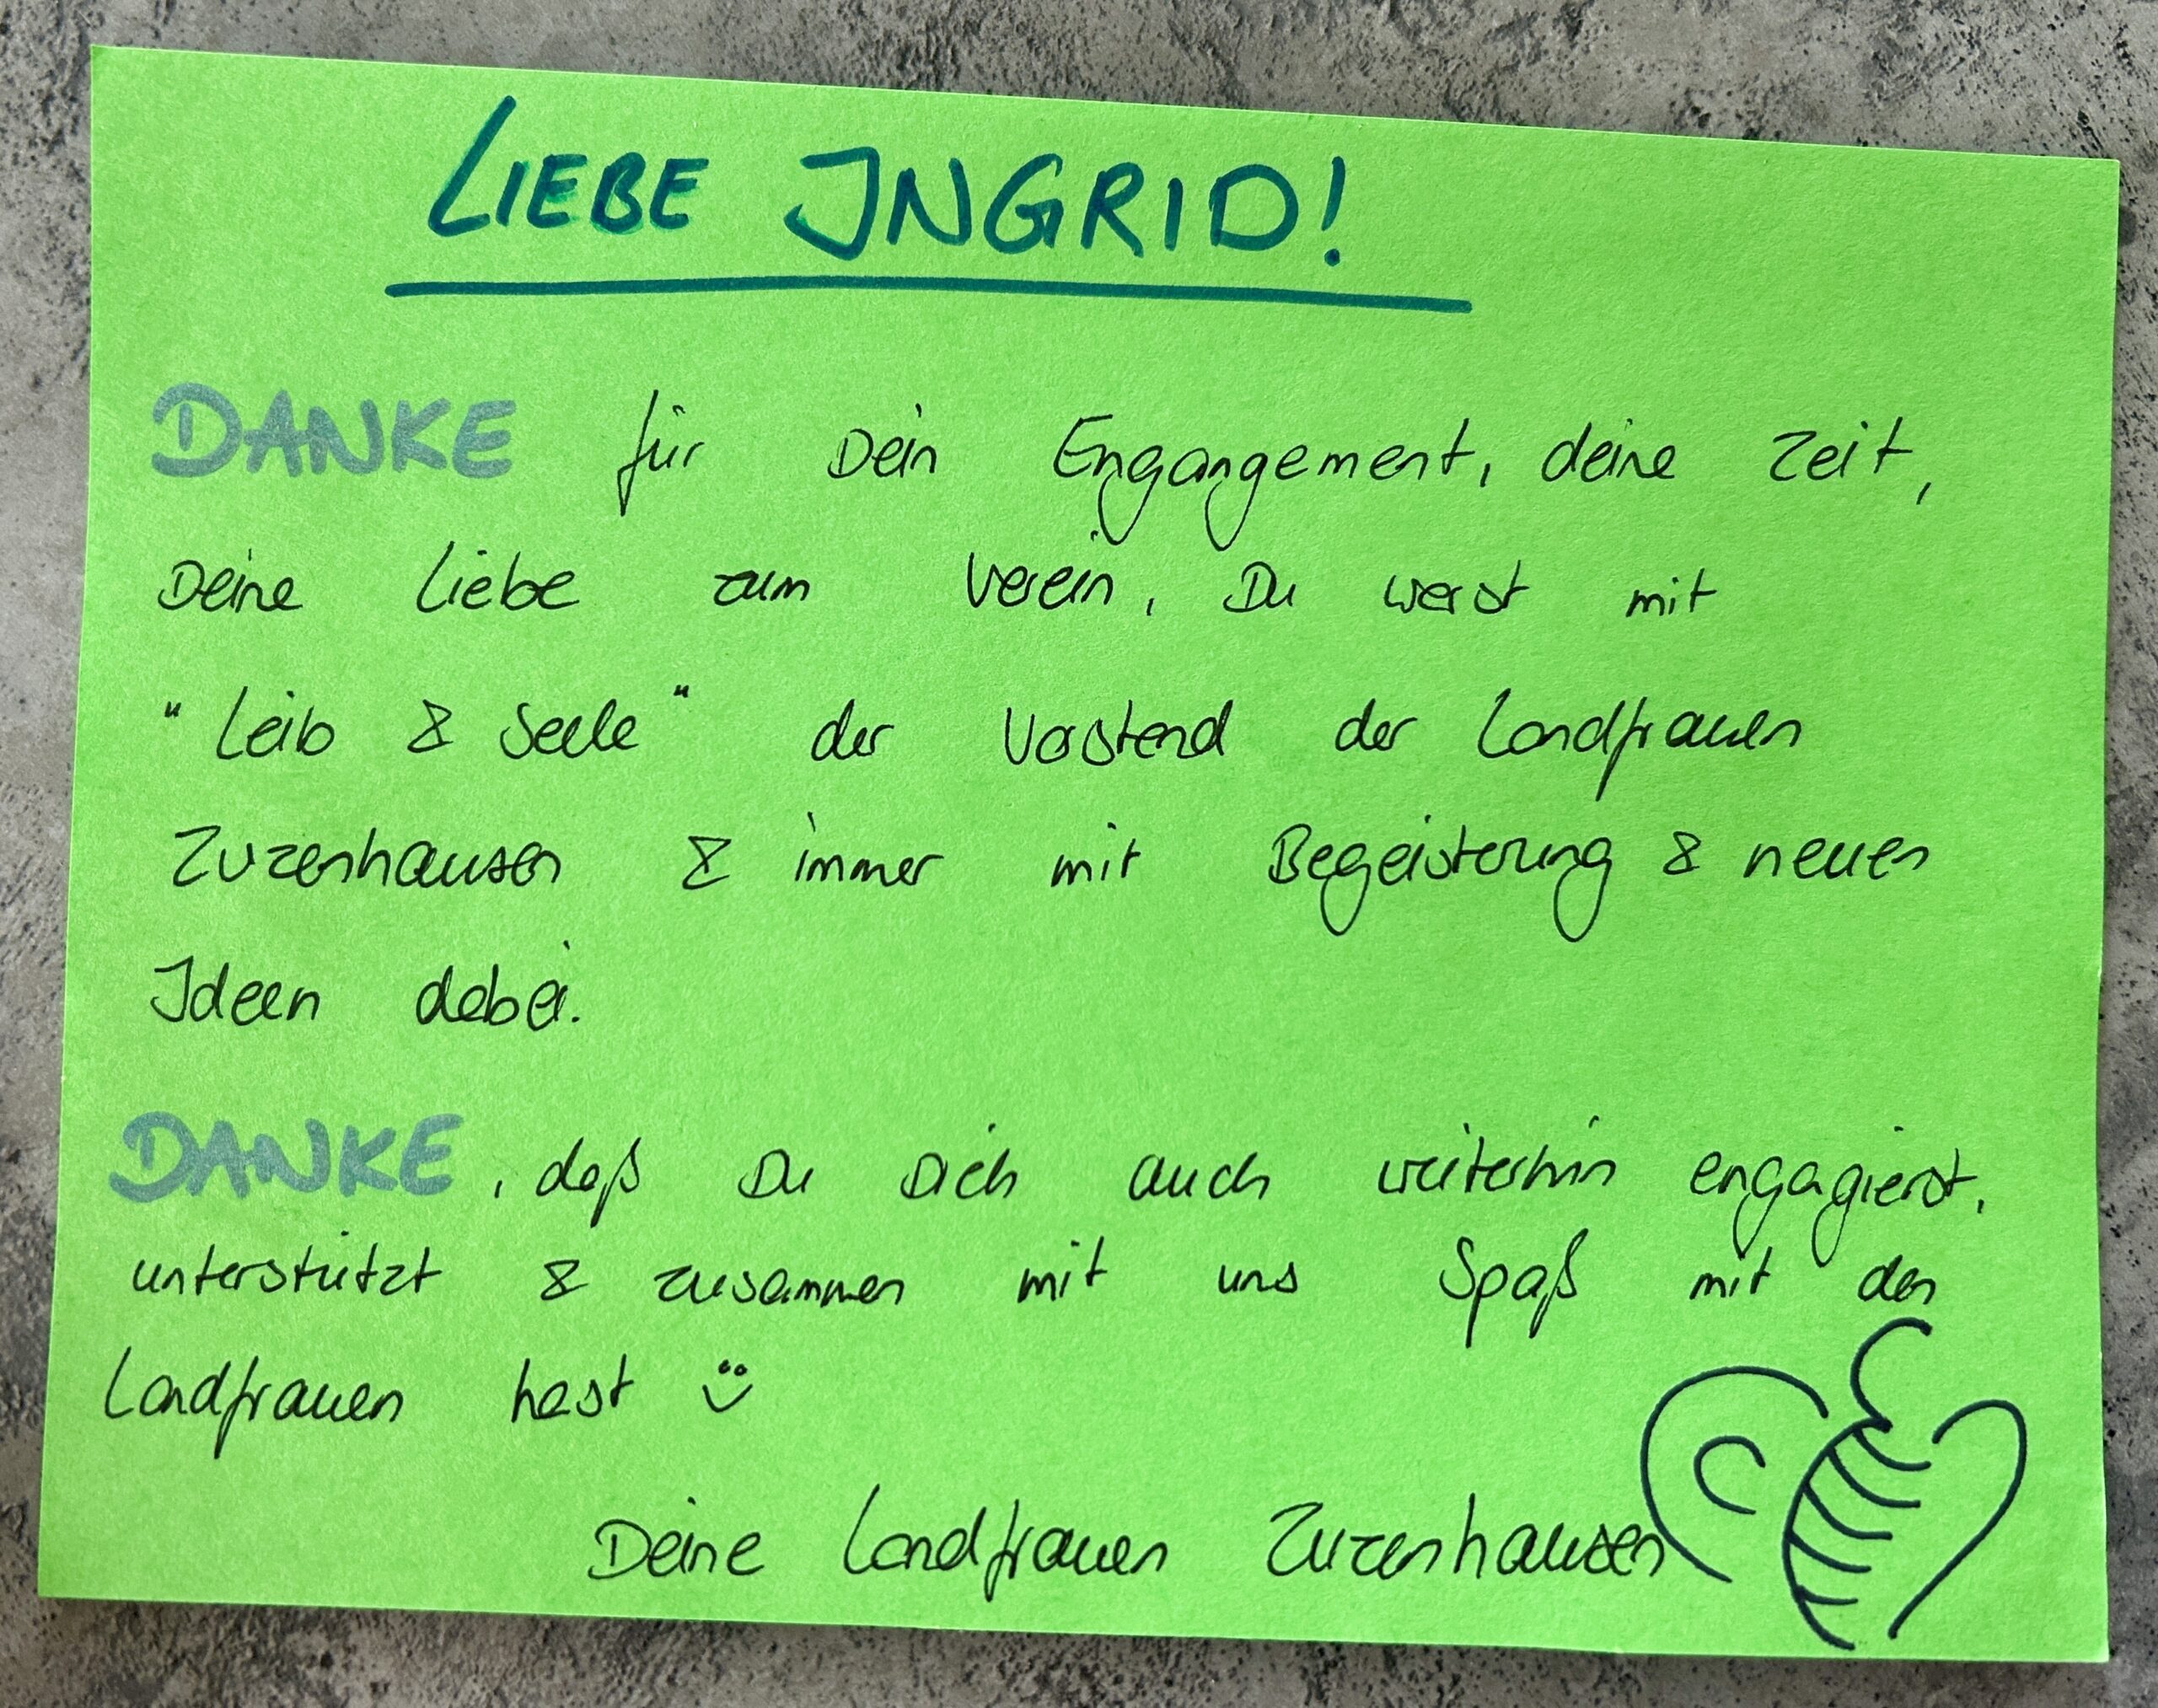 LIEBE INGRID!
DANKE für Dein Engangement, deine Zeit,
Deine Liebe zum Verein, Du warst mit
"Leib & Seele" der Vorstand der Landfrauen
Zuzenhausen & immer mit Begeisterung & neuen
Ideen dabei.
DANKE, daß Du Dich auch weiterhin engagierst,
unterstützt & zusammen mit uns Spaß mit den
Landfrauen hast ü
Deine Landfrauen Zuzenhausen